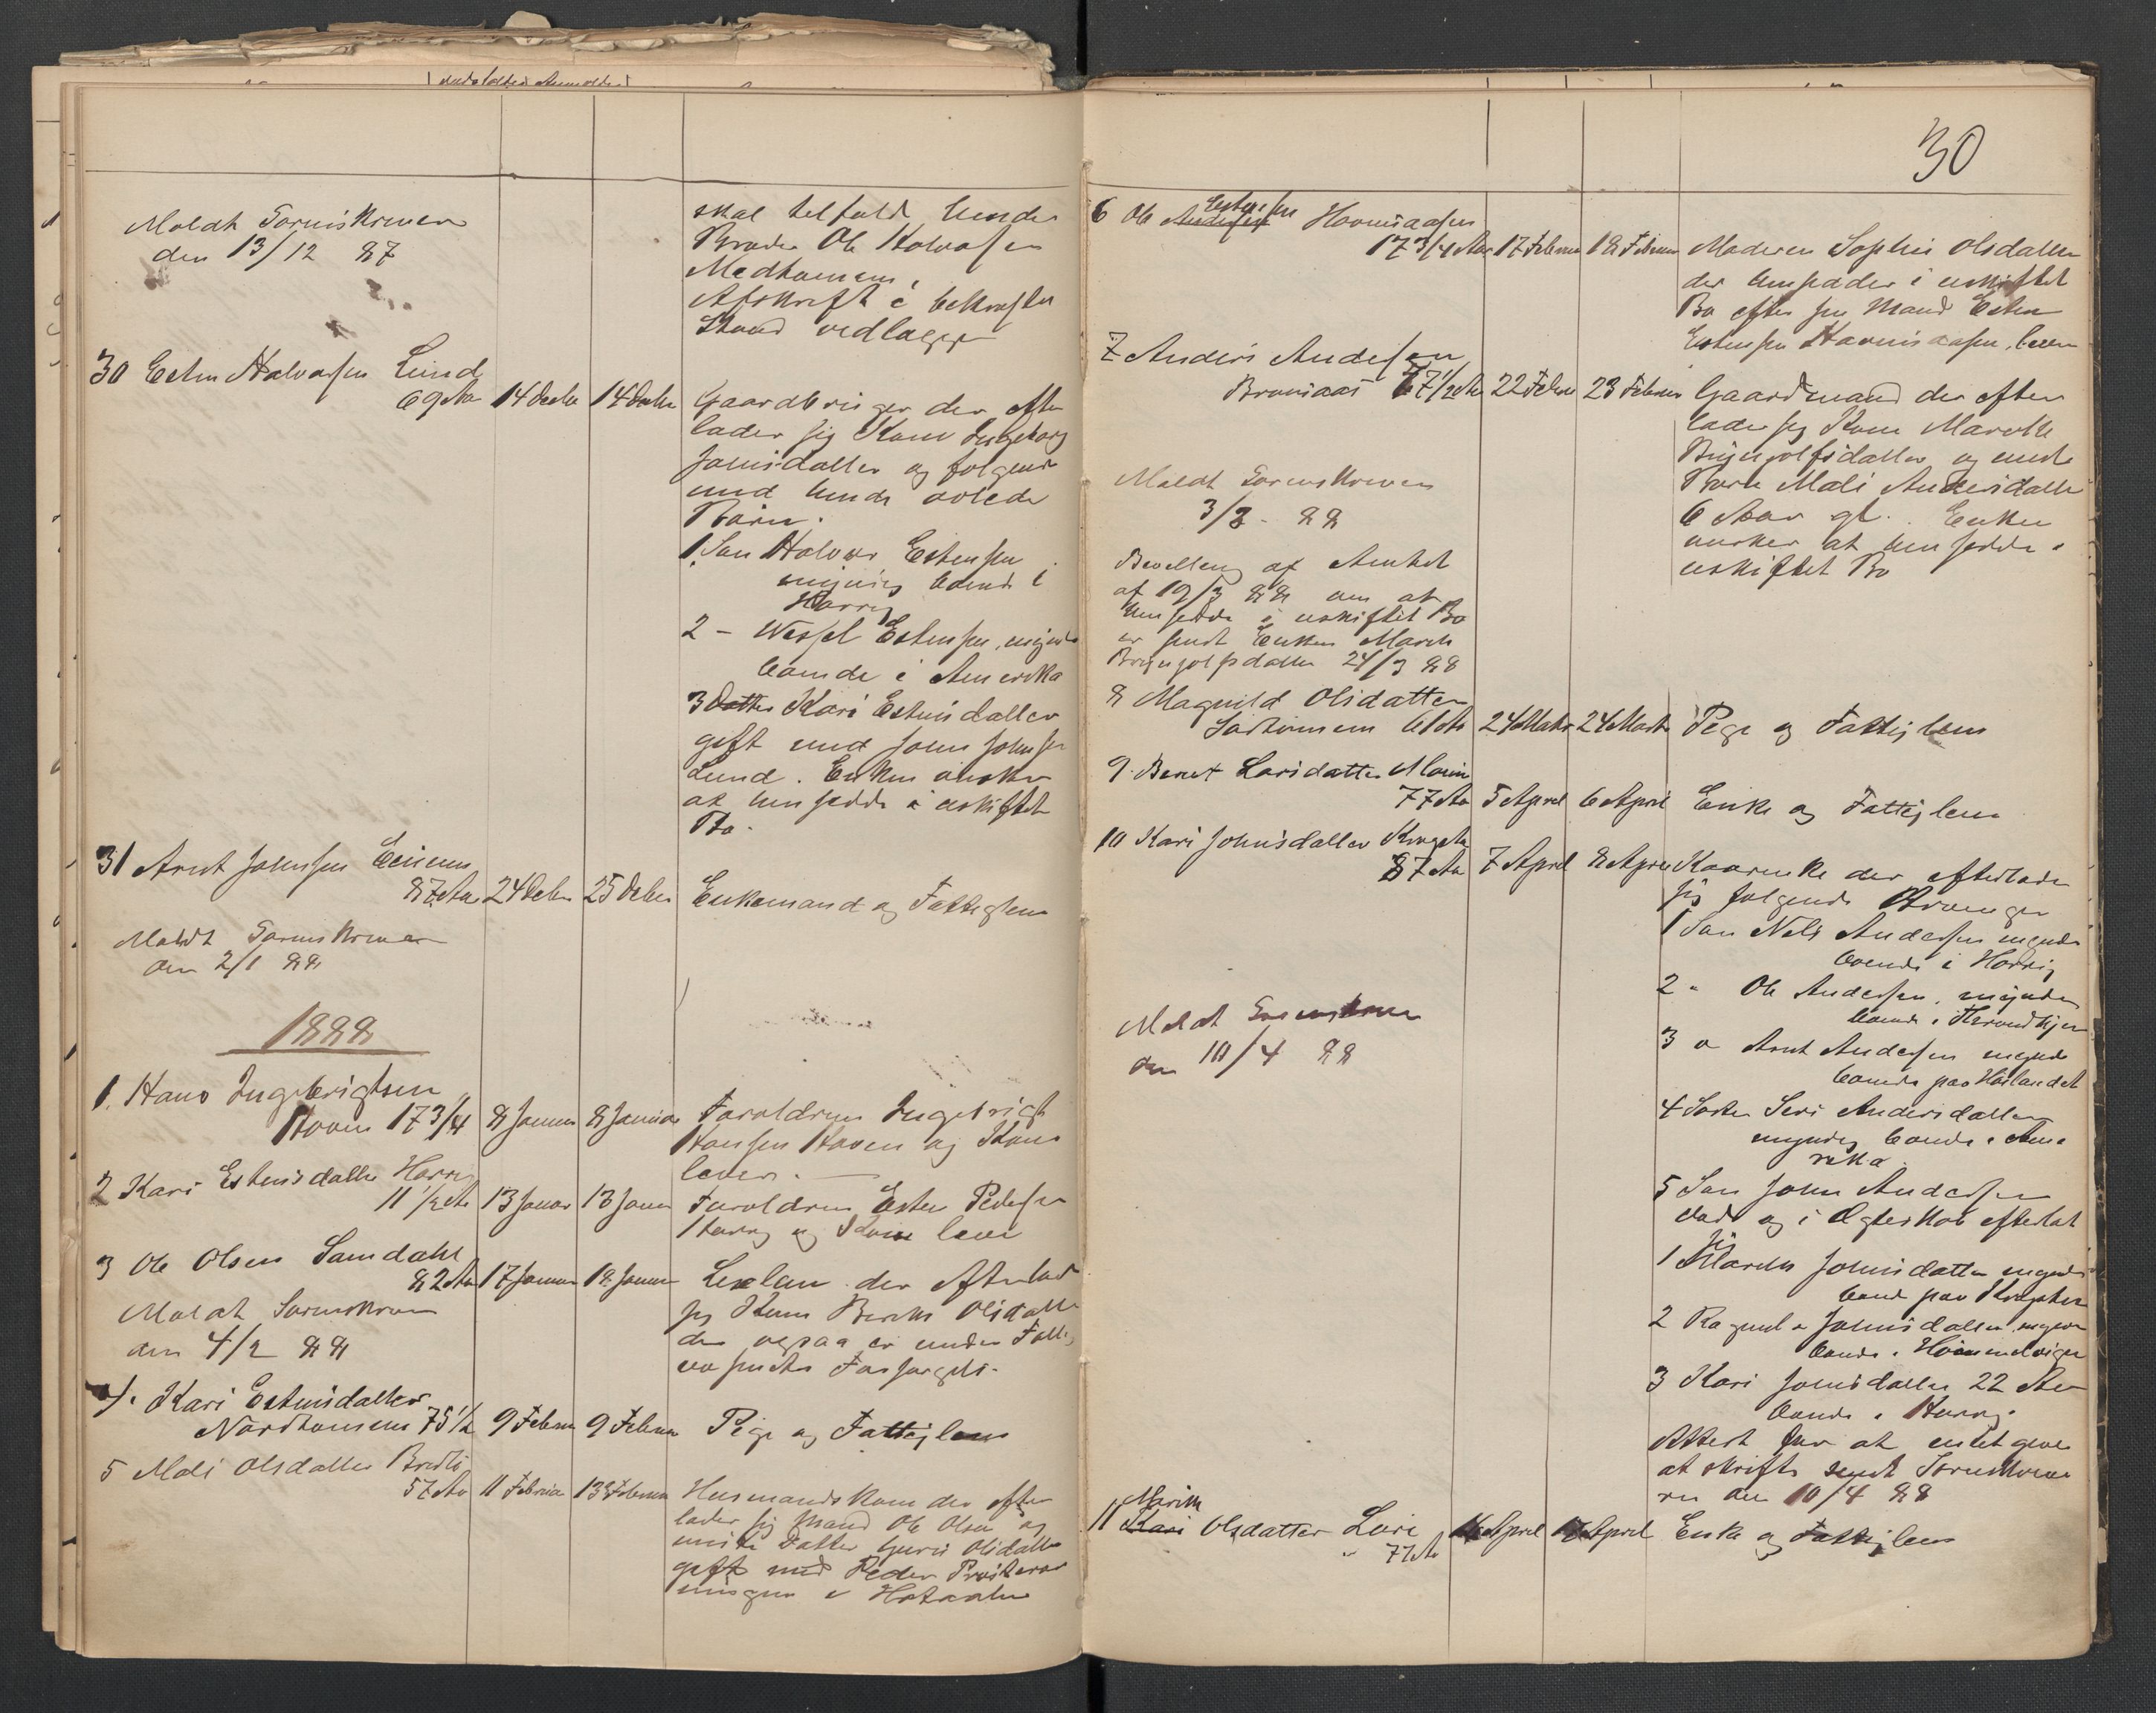 30
Meldt Sorenskriveren
den 13/12 87
skal tilfalde hendes
Broder Ole Halvorsen
Afskrift i bekræftet
Stand vedlægges
30 Esten Halvorsen Lund
69 Aar 14 Decbr 14 Decbr Gaardbruger der efter
lader sig Kone Ingeborg
Johnsdatter og følgende
med hende avlede
Børn.
1 Søn Halvor Estensen
myndig boende i
Horrig
2 - Wessel Estensen, myndig
boende i Amerika
3 Datter Kari Estensdatter
gift med John Johnsen
Lund. Enken ønsker
at hensidde i uskiftet
Bo.
31 Arnt Johnsen
87 Aar 24 Decbr 25 Decbr Enkemand og Fattiglem
Meldt Sorenskriveren
den 2/1 88
1888
1. Hans Ingebrigtsen
Hoven 17 3/4 8 Januar 8 Januar Forældrene Ingebrigt
Hansen Hoven og Kone
lever.
2 Kari Estensdatter Horrig
11 1/2 Aar 13 Januar 13 Januar Forældrene Esten Pedersen
Horrig og Kone lever
3 Ole Olsen Samdahl
82 Aar 17 Januar 18 Januar der efterlader
sig Kone Berit Olsdatter
der ogsaa er under Fattig
væsenets Forsørgelse.
Meldt Sorenskriveren
den 4/2 88
4. Kari Estensdatter
Nordhousem 75 1/2 9 Februar 9 Februar Pige og Fattiglem
5 Mali Olsdatter
57 Aar 11 Februar 13 Februar Husmandskone der efter
lader sig Mand Ole Olsen og
eneste Datter Guru Olsdatter
gift med Peder
i Holtaalen
6 Ole Andersen Estensen
17 3/4 Aar 17 Februar 18 Februar Moderen Sophie Olsdatter
der hensidder i uskiftet
Bo efter sin Mand Esten
Estensen lever
7 Anders Andersen
67 1/2 Aar 22 Febru 23 Februar Gaardmand der efter
lader sig Kone Marethe
Brynjolfsdatter og eneste
Barn Mali Andersdatter
6 Aar gl. Enken
ønsker at hensidde i
uskiftet Bo
Meldt Sorenskriveren
3/3 - 88
Bevilling af Amtet
af 19/3 88 om at
hensidde i uskiftet Bo
er sendt Enken Mareth
Brynjolfsdatter 24/3 88
8 Magnild Olsdatter
61 Aar 24 Marts 24 Marts Pige og Fattiglem
9. Beret Larsdatter
77 Aar 5 April 6 April Enke og Fattiglem
10 Kari Johnsdatter
87 Aar 7 April 8 April Kaarenke der efterlader
sig følgende Arvinger
1 Søn Nels Andersen myndig
boende i Horrig
2 " Ole Andersen, myndig
boende i Throndhjem
3 " Arnt Andersen myndig
boende paa Høilandet
4 Datter Seri Andersdatter
myndig boende i Ame
rika
5 Søn John Andersen
død og i Ægteskab efterladt
sig
1 Marith Johnsdatter myndig
boende paa
2 Ragnild Johnsdatter, myndig
boende i Hommelvigen
3 Kari Johnsdatter 22 Aar
boende i Horrig.
Attest for at intet gives
at skifte sendt Sorenskrive
ren den 10/4 88
Meldt Sorenskriveren
den 10/4 88
11 Kari Marith Olsdatter
77 Aar April April Enke og Fattiglem